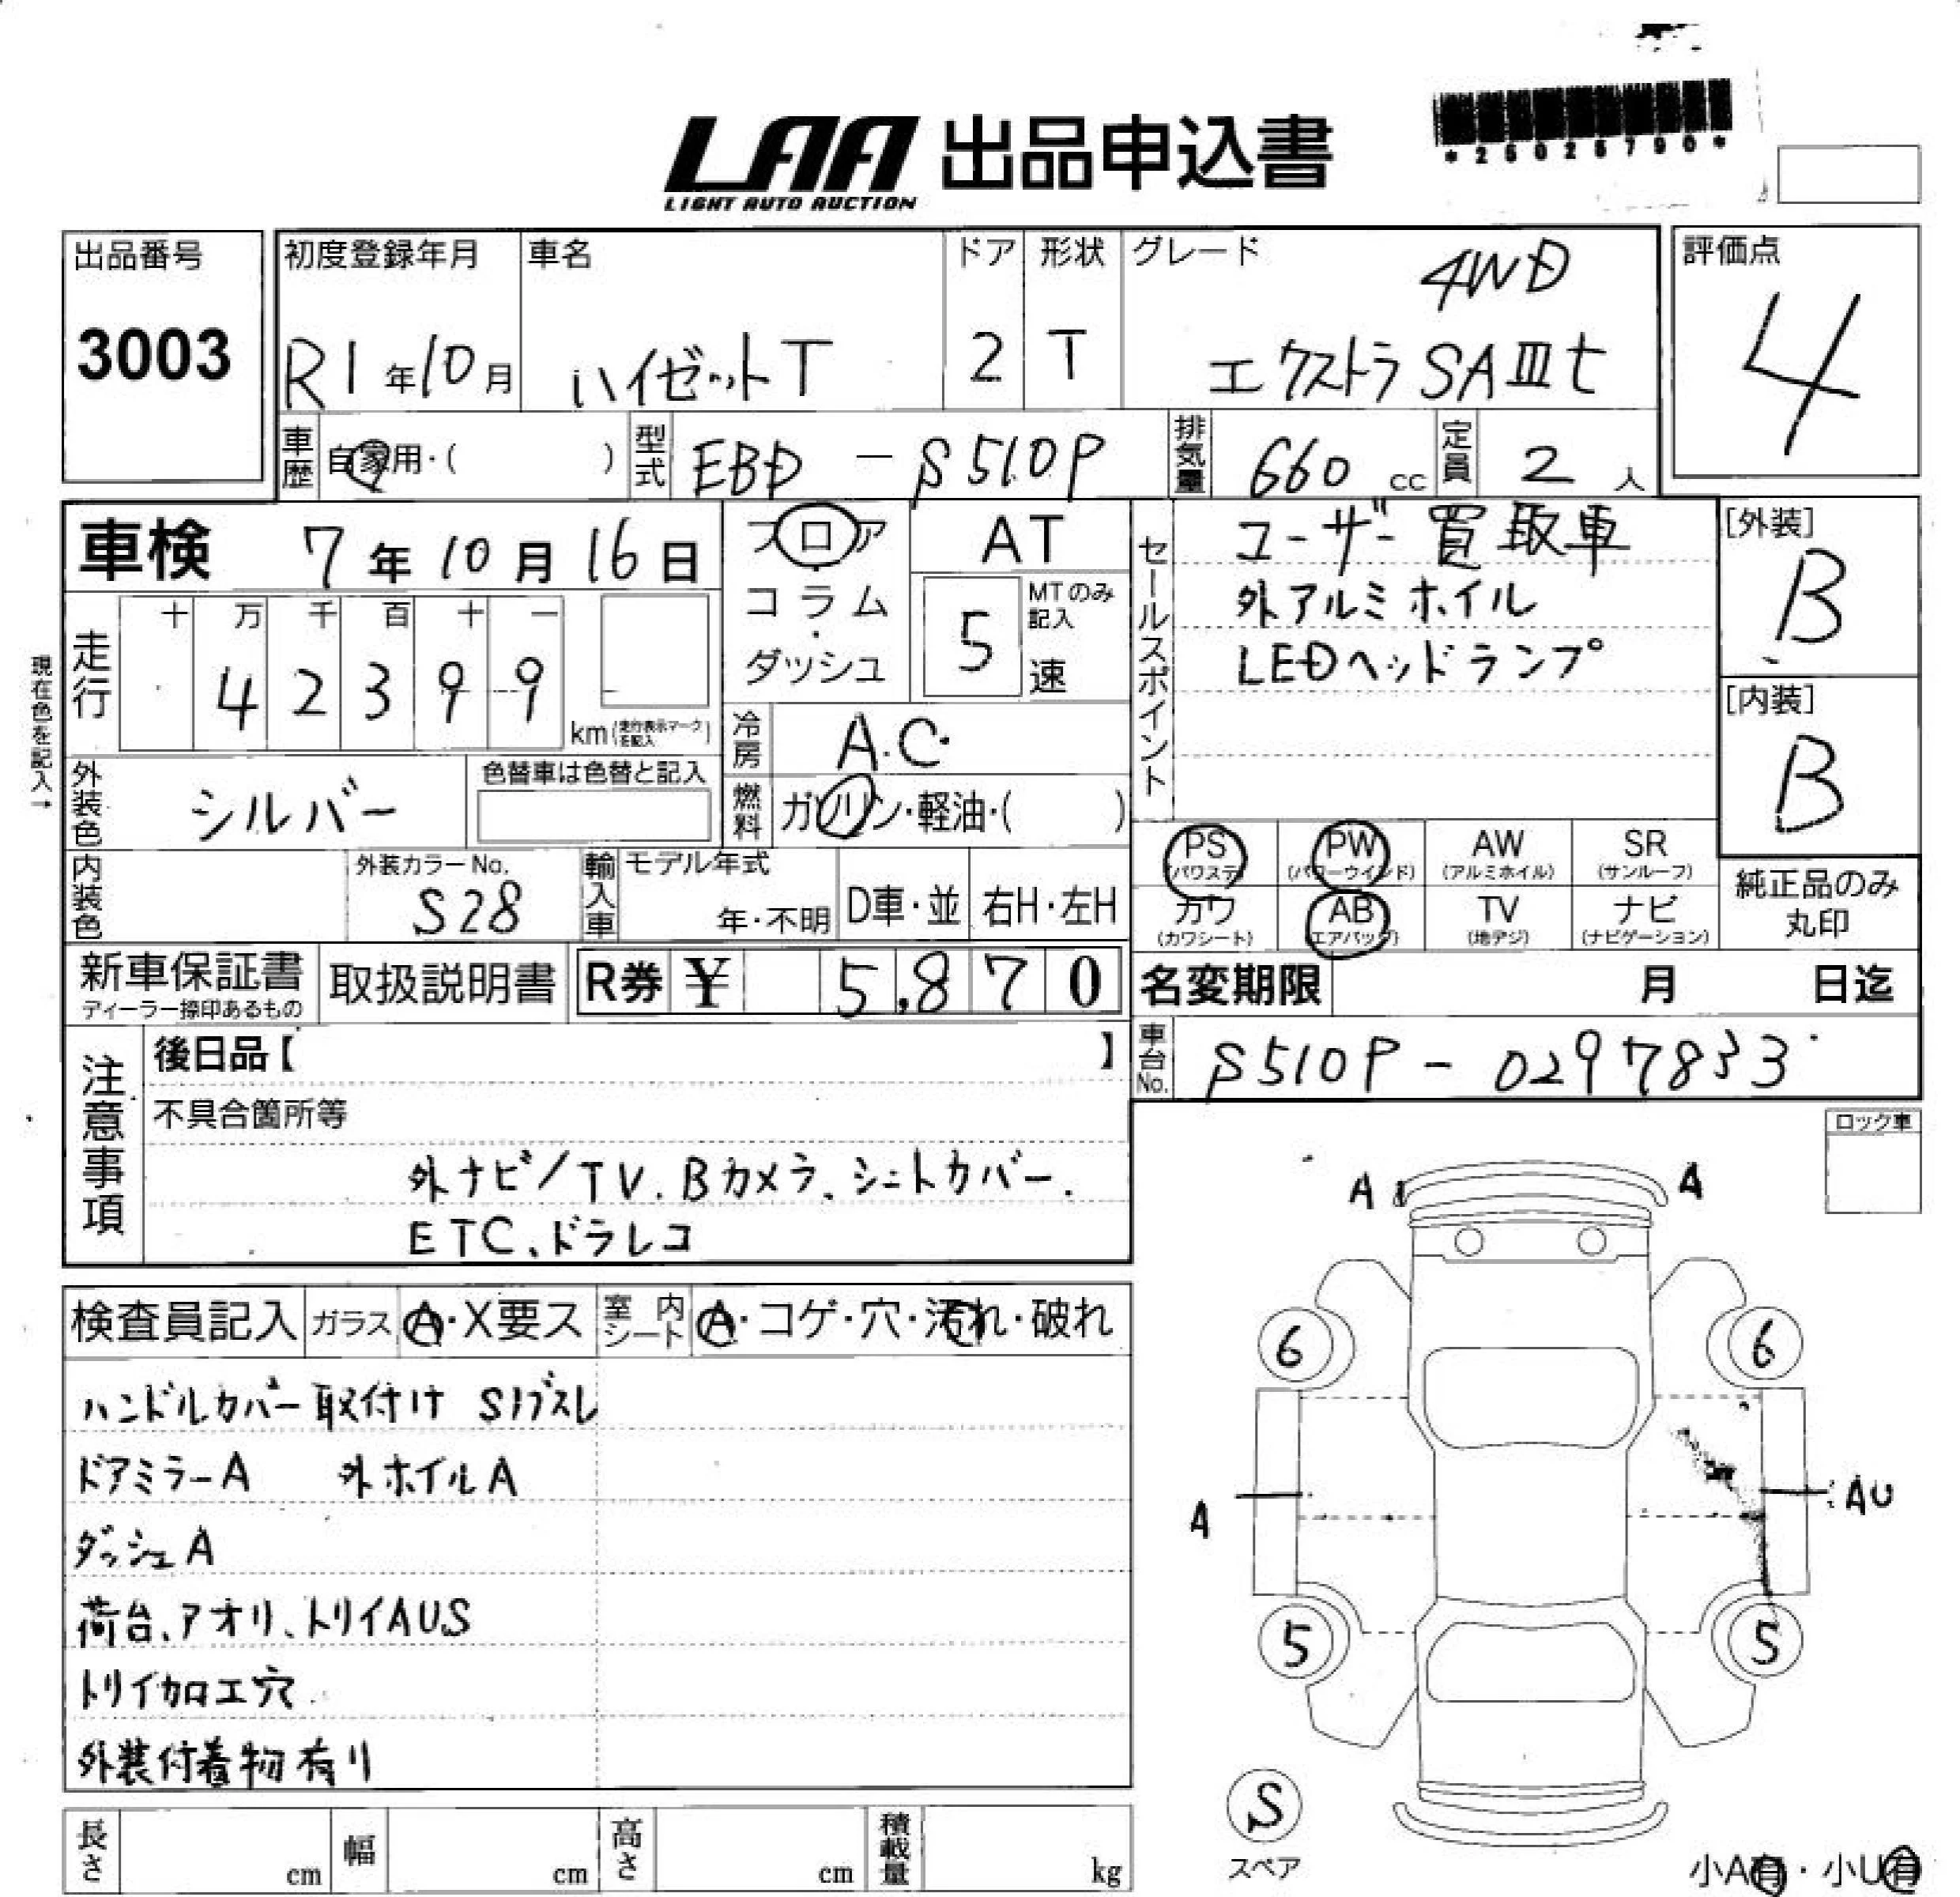 LAA 出品申込書
LIGHT AUTO AUCTION
*25025790*
出品番号
3003
初度登録年月
R1年10月
車名
ハイゼットT
ドア
2
形状
T
グレード
4WD
エクストラSAIIIt
評価点
4
車歴
自家用・( )
型式
EBD-S510P
排気量
660cc
定員
2人
車検 7年10月16日
フロア・コラム・ダッシュ
AT
5
MTのみ記入
速
セールスポイント
ユーザー買取車
外アルミホイル
LEDヘッドランプ
[外装]
B
[内装]
B
現在色を記入→
走行
十 万 千 百 十 一
4 2 3 9 9
km(走行表示マークを記入)
冷房
A.C.
外装色
シルバー
色替車は色替と記入
燃料
ガソリン・軽油・( )
PS (パワステ)
PW (パワーウインド)
AW (アルミホイル)
SR (サンルーフ)
カワ (カワシート)
AB (エアバッグ)
TV (地デジ)
ナビ (ナビゲーション)
純正品のみ丸印
内装色
外装カラーNo.
S28
輸入車
モデル年式
年・不明
D車・並
右H・左H
新車保証書
ディーラー捺印あるもの
取扱説明書
R券 ¥ 5,870
名変期限 月 日迄
車台No.
S510P-0297833
注意事項
後日品【 】
不具合箇所等
外ナビ/TV.Bカメラ、シートカバー.
ETC、ドラレコ
ロック車
検査員記入
ガラス
A・X要ス
室内シート
A・コゲ・穴・汚れ・破れ
ハンドルカバー取付け Sリブスレ
ドアミラーA 外ホイルA
ダッシュA
荷台、アオリ、トリイAUS
トリイカロエ穴
外装付着物有り
A
A
6
6
A
AU
5
5
S
スペア
小A有・小U有
長さ cm
幅 cm
高さ cm
積載量 kg